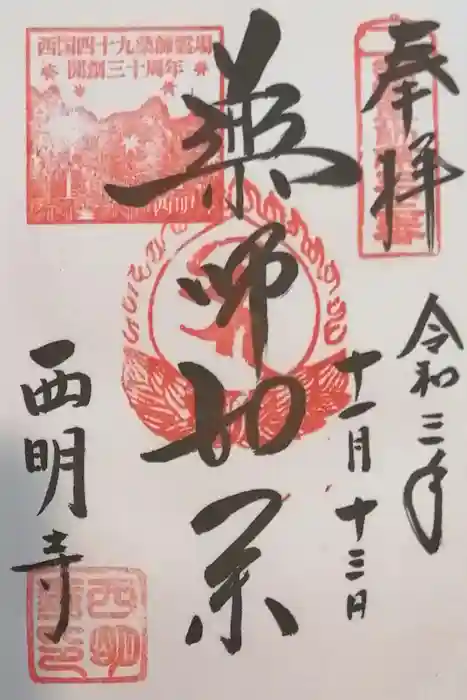 奉拝
令和三年
十一月十三日
薬師如来
西国四十九薬師霊場
開創三十周年
西明寺